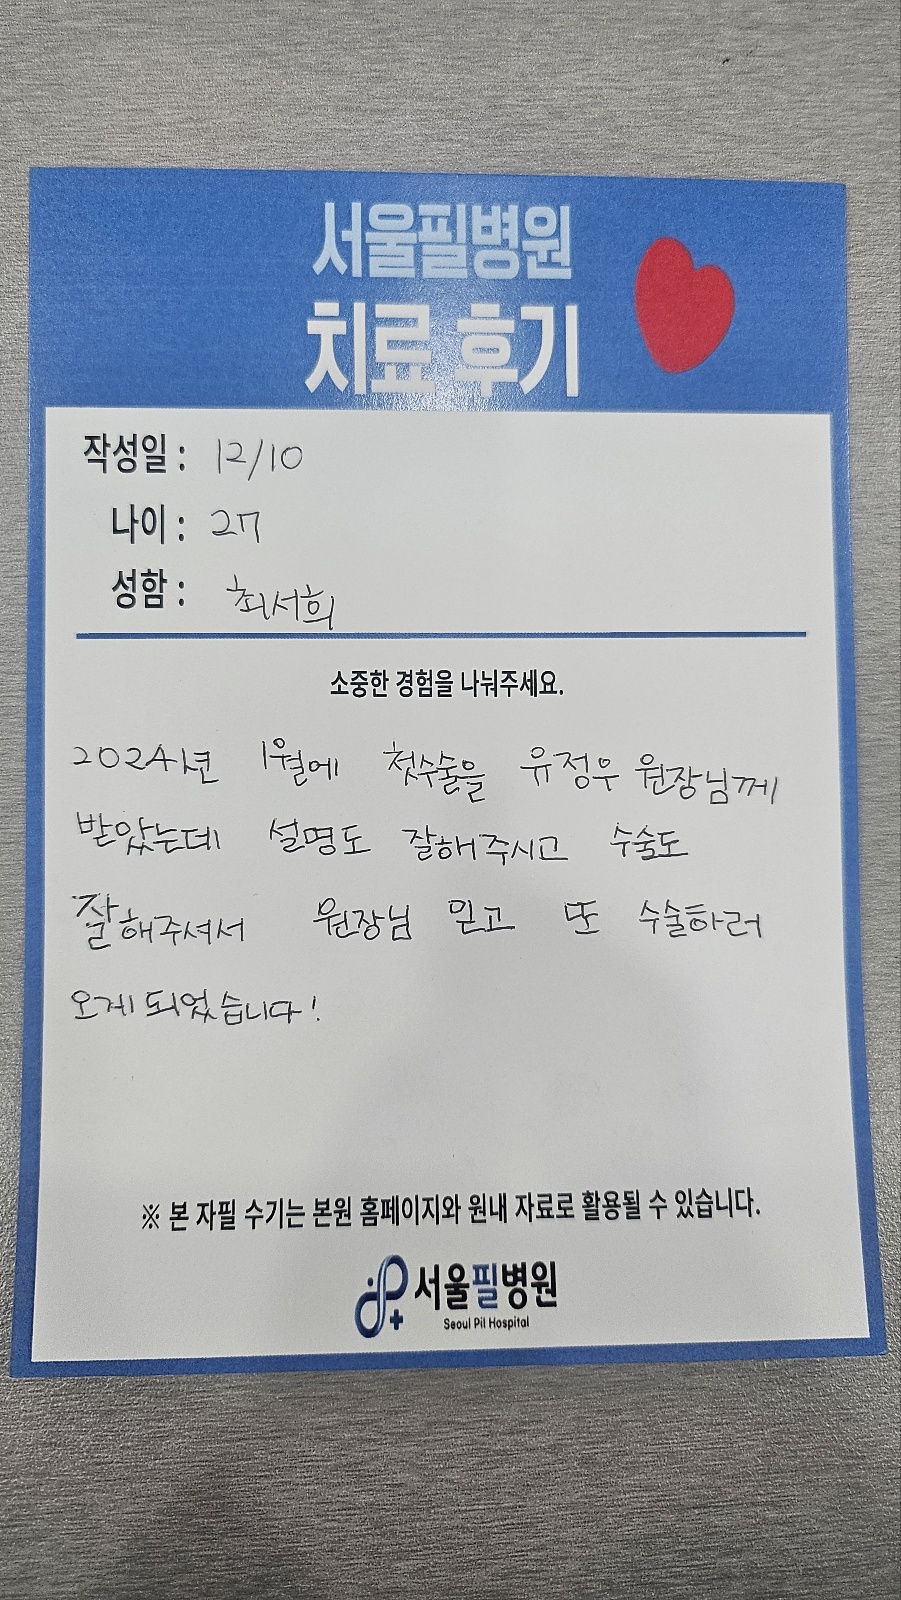 서울필병원
치료 후기
작성일 : 12/10
나이 : 27
성함 : 최서희
소중한 경험을 나눠주세요.
2024년 1월에 첫수술을 유정우 원장님께
받았는데 설명도 잘해주시고 수술도
잘해주셔서 원장님 믿고 또 수술하러
오게 되었습니다!
※ 본 자필 수기는 본원 홈페이지와 원내 자료로 활용될 수 있습니다.
서울필병원
Seoul Pil Hospital